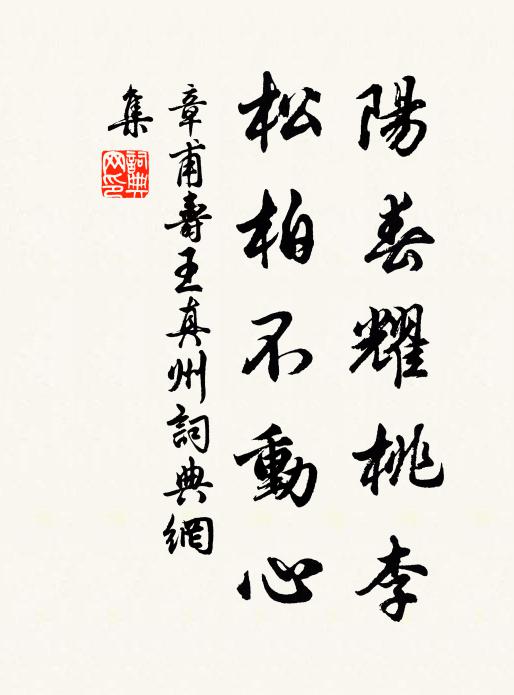 陽春耀桃李
松柏不動心
章甫壽王真州詞典網
集
詞典網印